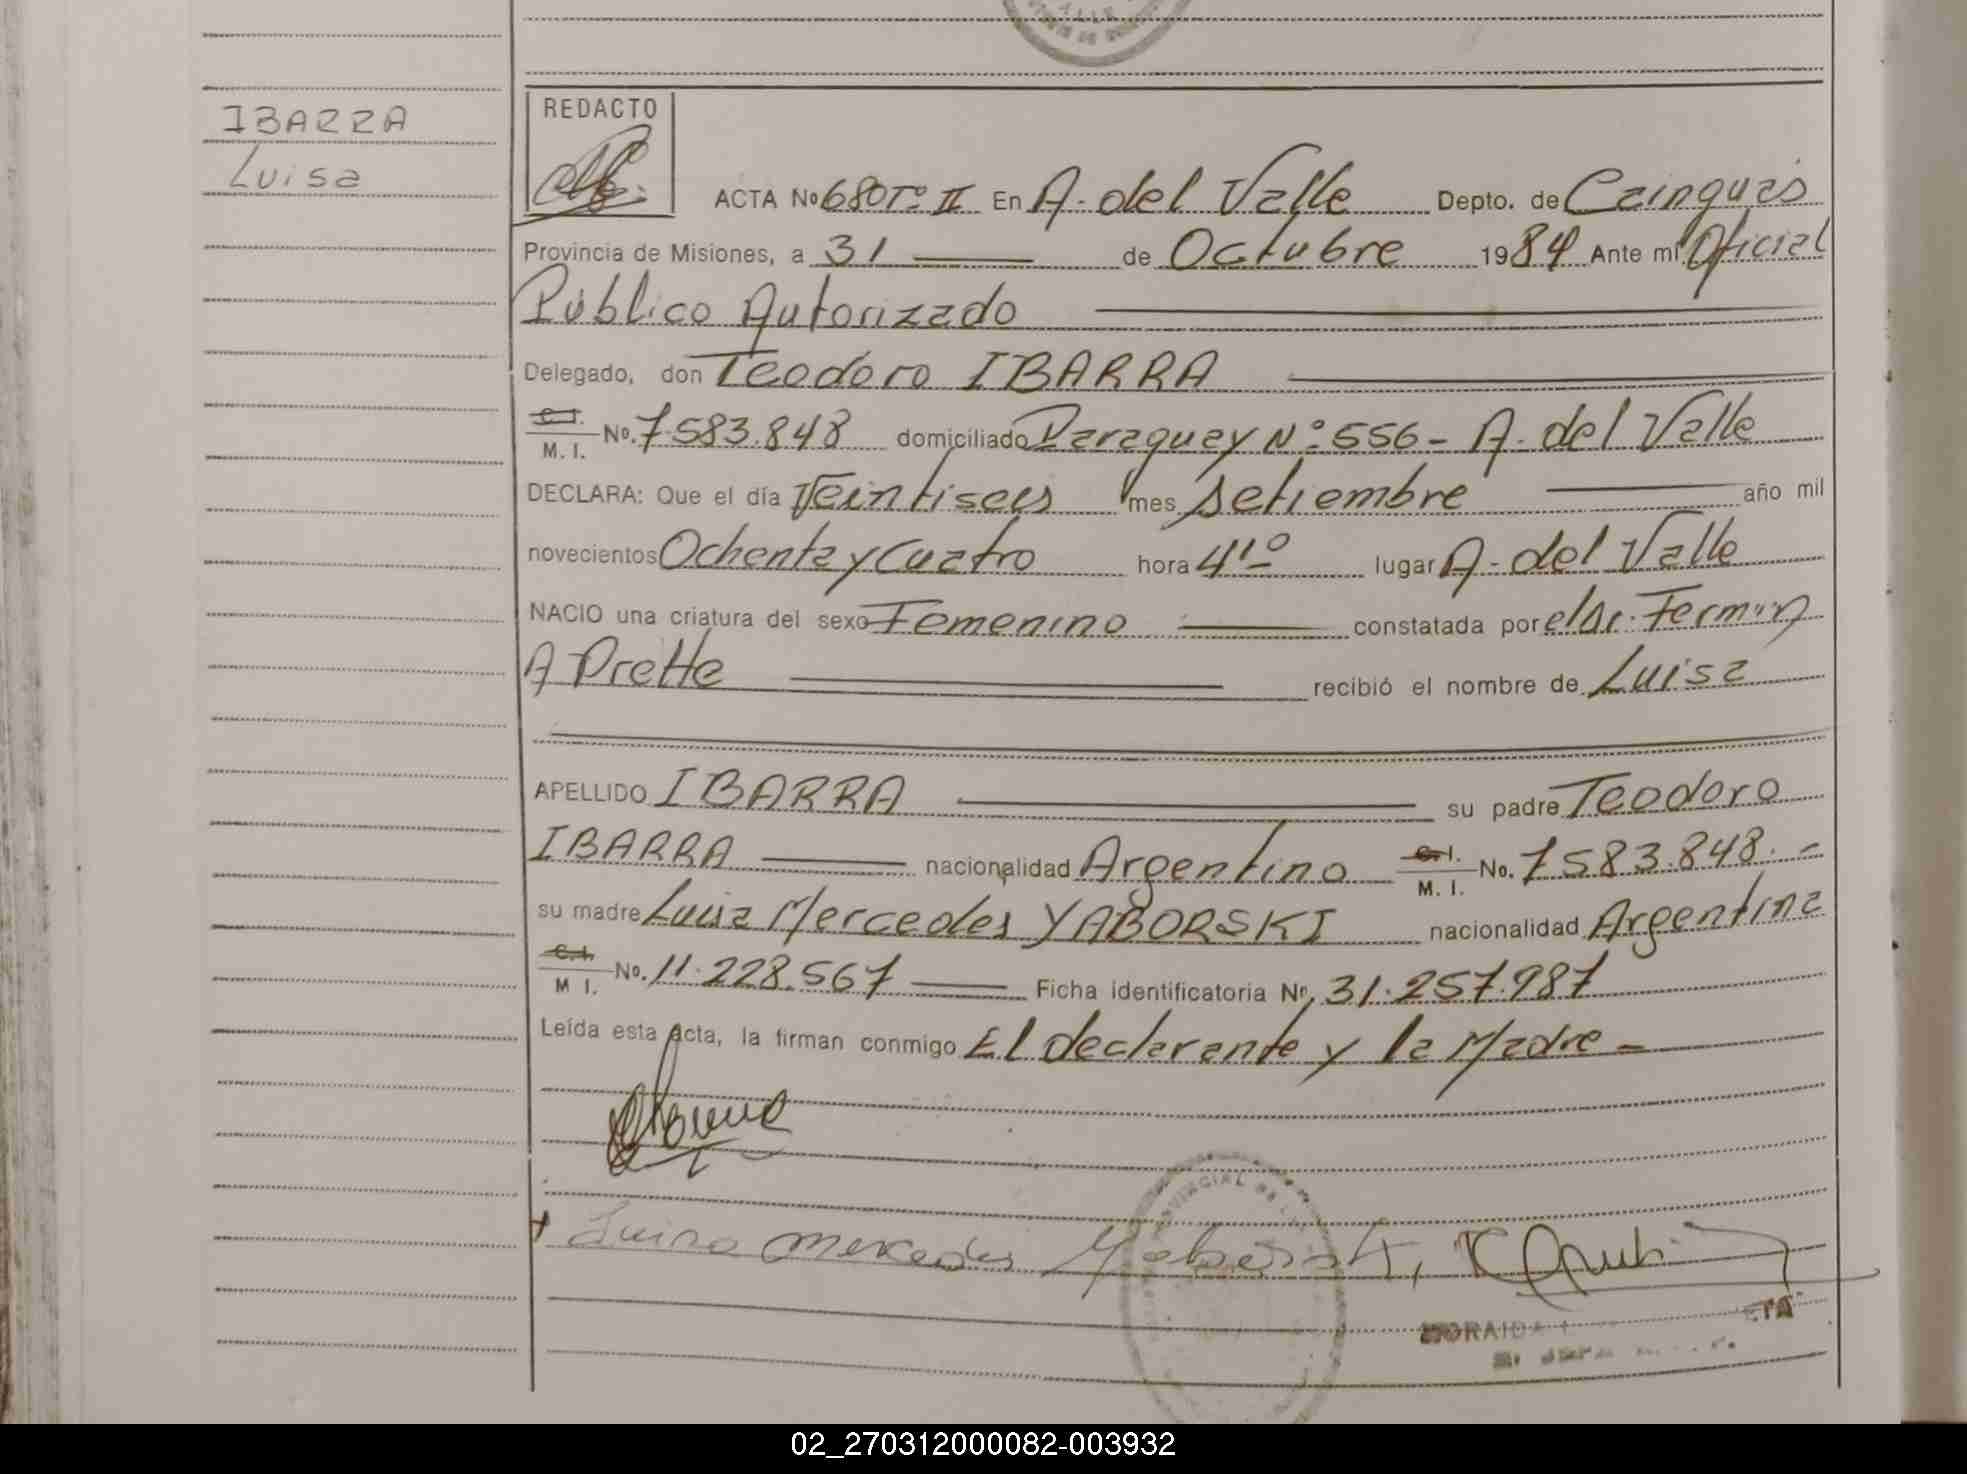 IBARRA
Luisa
REDACTO
ACTA Nº 680 Tº II En A. del Valle Depto. de Cainguas
Provincia de Misiones, a 31 de Octubre 1984 Ante mí Oficial
Público Autorizado
Delegado, don Teodoro IBARRA
C.I.
M. I. Nº. 7.583.848 domiciliado Paraguay Nº 556 - A. del Valle
DECLARA: Que el día Veintiseis mes Setiembre año mil
novecientos Ochenta y Cuatro hora 4 1º lugar A. del Valle
NACIO una criatura del sexo Femenino constatada por el Dr. Fermin
A Prette recibió el nombre de Luisa
APELLIDO IBARRA su padre Teodoro
IBARRA nacionalidad Argentino C.I. M. I. Nº. 7.583.848. -
su madre Luisa Mercedes YABORSKI nacionalidad Argentina
C.I.
M I. Nº. 11.228.567 Ficha identificatoria Nº, 31.257.987
Leída esta acta, la firman conmigo El declarante y la Madre -
Luisa Mercedes
PROVINCIAL DE
02_270312000082-003932